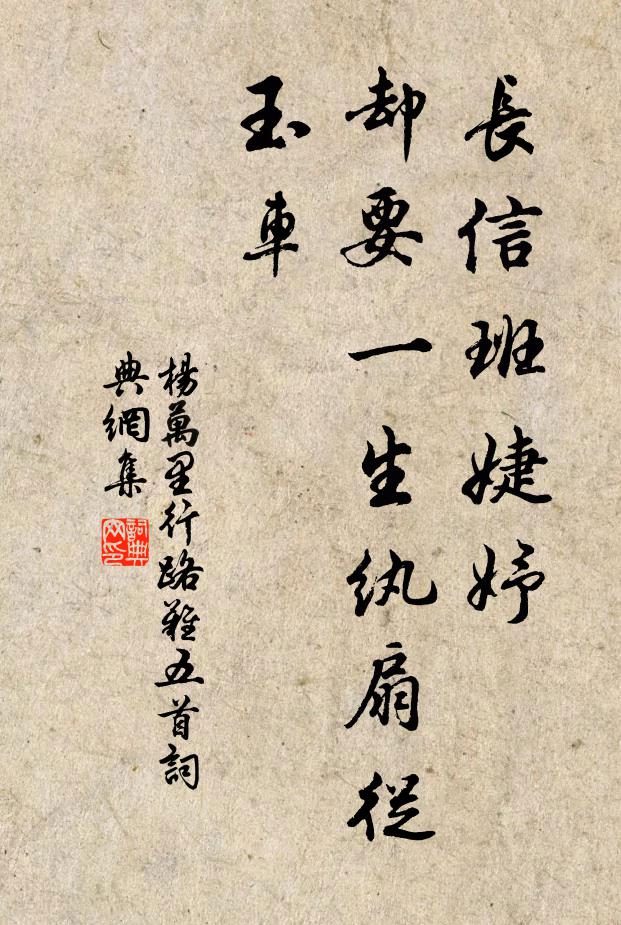 長信班婕妤
却要一生紈扇從
玉車
楊萬里行路難五首詞
典網集
詞典
网印